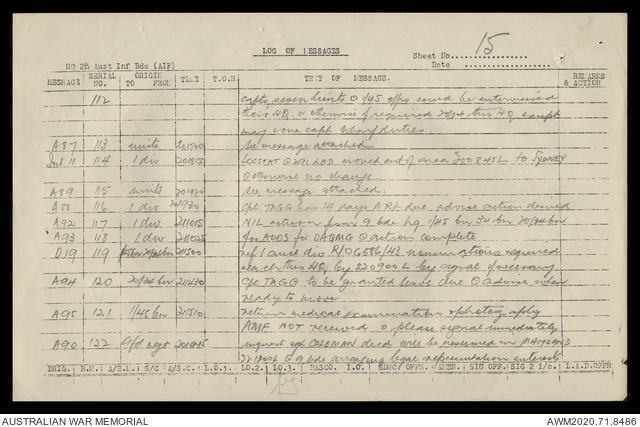 LOG OF MESSAGES
Sheet No. 15
HQ 28 Aust Inf Bde (AIF)
Date
MESSAGE SERIAL NO. ORIGIN TO FROM TIME T.O.R TEXT OF MESSAGE. REMARKS & ACTION
112 capts seven lieuts @ 1/45 offrs could be interviewed
their HQ or otherwise if required 20/34 this HQ except
may one capt wharf duties.
A87 113 units 201700 See message attached
Sul 11 114 1 div 201815 LOCSTAT @ 291 LAD moved out of area 200845L to SYDNEY
@ otherwise no change.
A89 115 units 201920 See message attached.
A88 116 1 div 201930 Cpl TAGG has 14 days ARL due advise action desired
A92 117 1 div 211015 NIL return from 9 bde hq 1/45 bn 34 bn 20/34 bn
A93 118 1 div 211025 for ADOS for DAQMG @ action complete
O19 119 20/34 bn 211500 ref 1 aust div R/OG586/43 nominations required
reach this HQ by 220900L by signal if necessary
A94 120 20/34 bn 211430 Cpl TAGG to be granted leave due @ advise when
ready to move
A95 121 1/45 bn 211510 return medical examinations photography apply
AMF NOT received @ please signal immediately
A90 122 9/d regs inquest spr COLEMAN decd will be resumed in MAITLAND
@ 9 bde arranging legal representation interests
BRIG. B.M. A/B.M. S/C A/S.C. L.O.1. L.O.2. L.O.3. BASCO. I.O. EDUC. OFFR. AMEN. SIG OFF. SIG 2 i/c. L.A.D. OFFR
AUSTRALIAN WAR MEMORIAL
AWM2020.71.8486